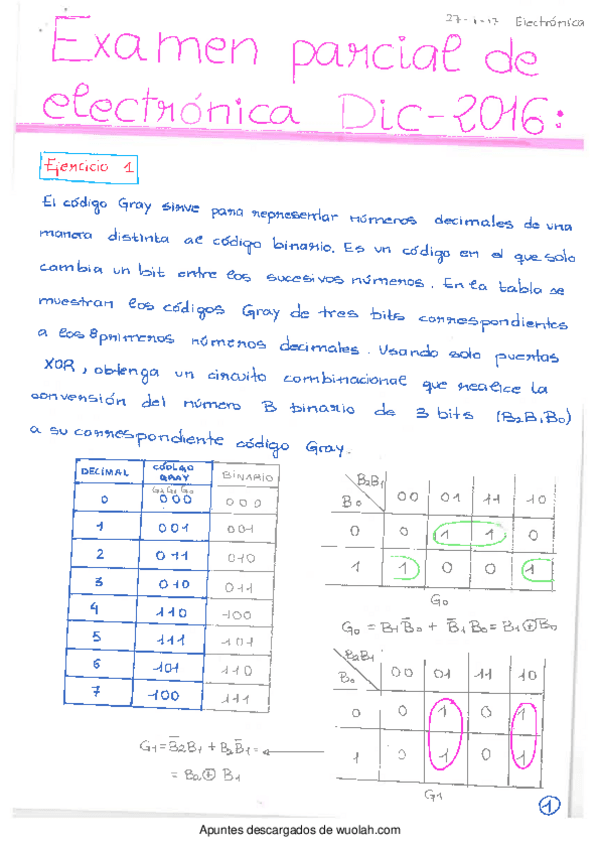 27-1-17 Electrónica
Examen parcial de
electrónica Dic-2016:
Ejercicio 1
El código Gray sirve para representar números decimales de una
manera distinta al código binario. Es un código en el que solo
cambia un bit entre los sucesivos números. En la tabla se
muestran los códigos Gray de tres bits correspondientes
a los 8 primeros números decimales. Usando solo puertas
XOR, obtenga un circuito combinacional que realice la
conversión del número B binario de 3 bits (B2B1B0)
a su correspondiente código Gray.
DECIMAL CÓDIGO GRAY BINARIO
G2 G1 G0
0 000 000
1 001 001
2 011 010
3 010 011
4 110 100
5 111 101
6 101 110
7 100 111
B2B1
B0 00 01 11 10
0 0 1 1 0
1 1 0 0 1
G0
G0 = B1B̄0 + B̄1B0 = B1⊕B0
B2B1
B0 00 01 11 10
0 0 1 0 1
1 0 1 0 1
G1
G1 = B̄2B1 + B2B̄1 =
= B2 ⊕ B1
1
Apuntes descargados de wuolah.com